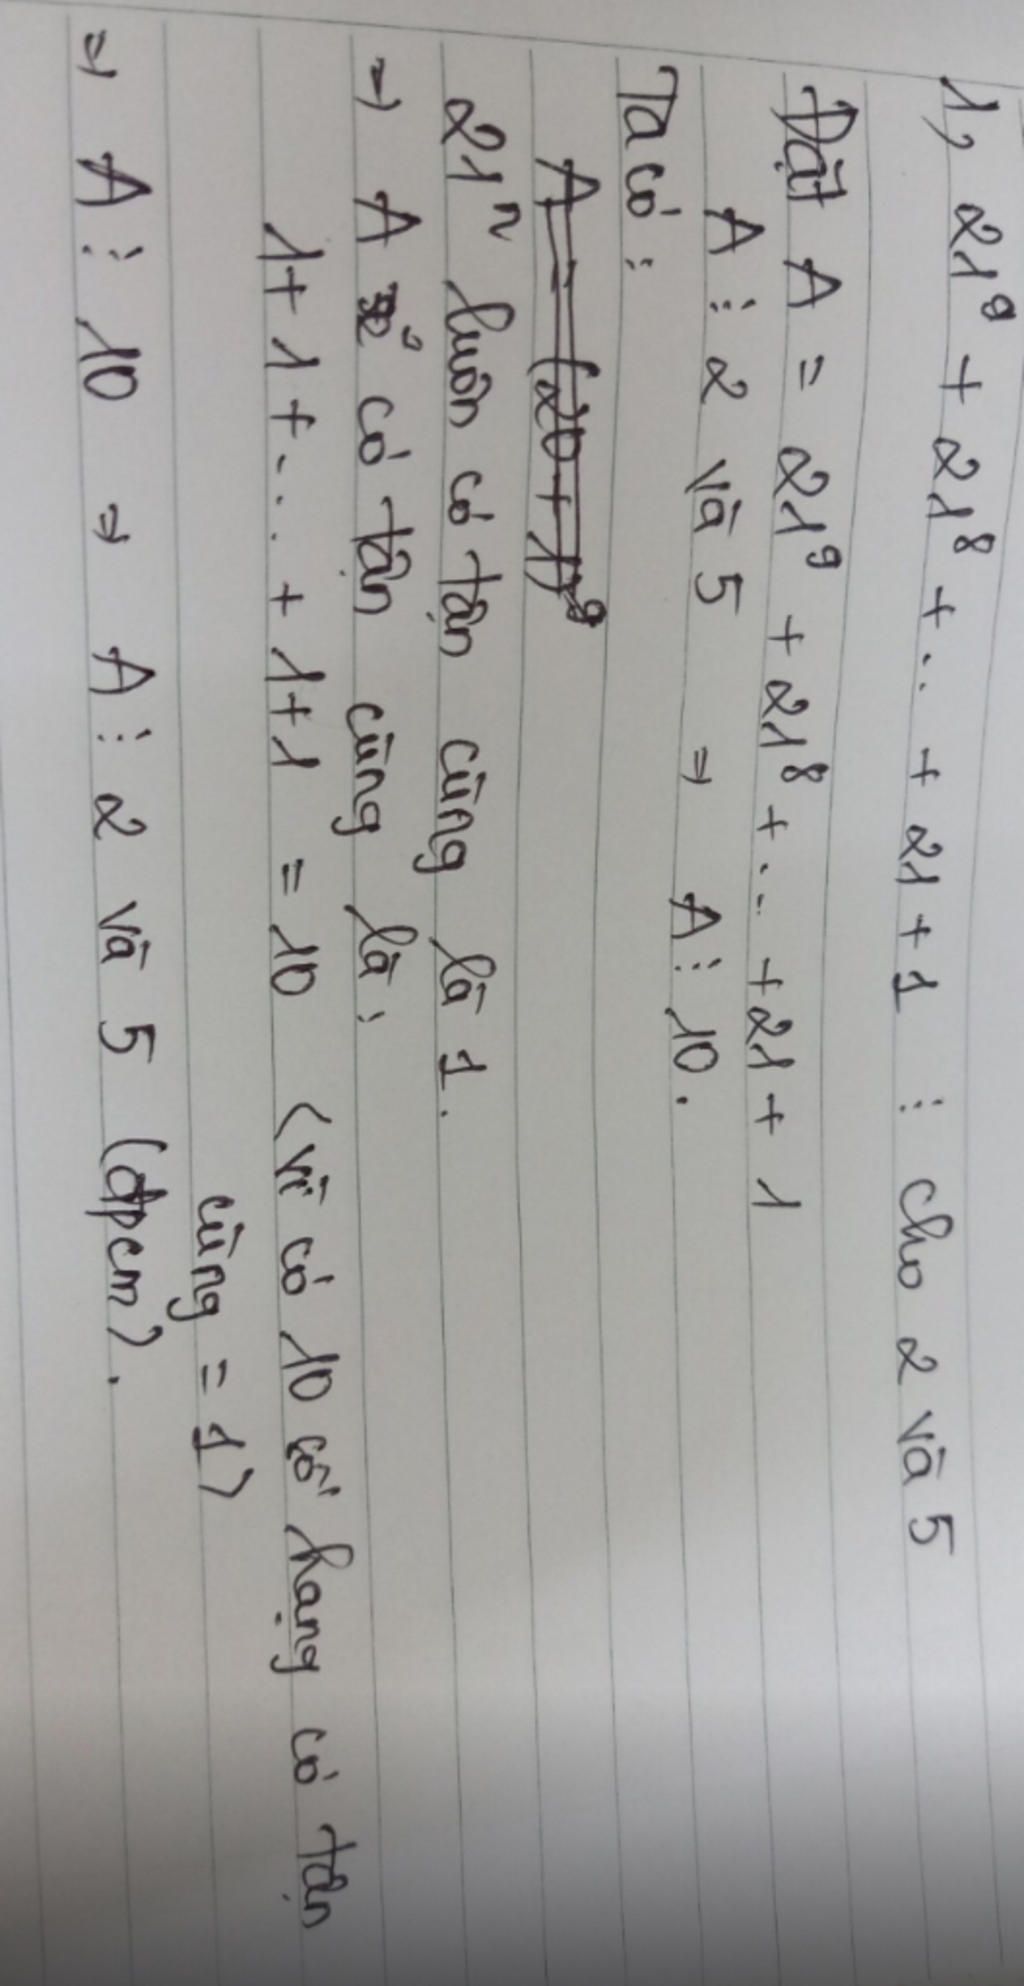 1, 21⁹ + 21⁸ + ... + 21 + 1 ⋮ cho 2 và 5
Đặt A = 21⁹ + 21⁸ + ... + 21 + 1
A ⋮ 2 và 5 ⇒ A ⋮ 10.
Ta có :
A = (20 + 1)⁹
21ⁿ luôn có tận cùng là 1.
⇒ A sẽ có tận cùng là :
1 + 1 + ... + 1 + 1 = 10 (vì có 10 số hạng có tận
cùng = 1)
⇒ A ⋮ 10 ⇒ A ⋮ 2 và 5 (đpcm).